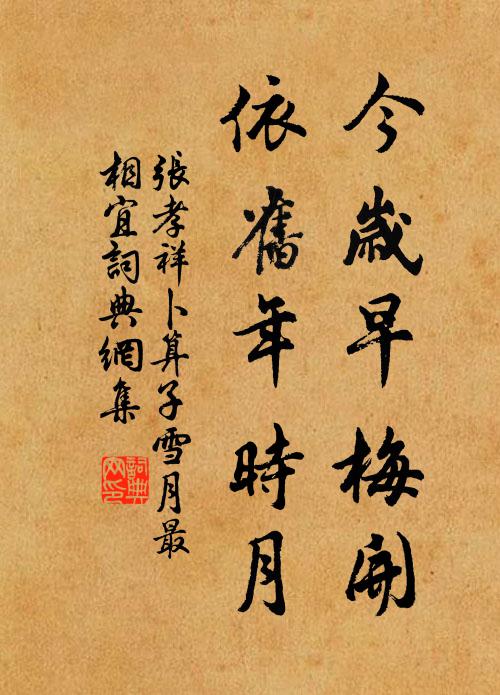 今歲早梅開
依舊年時月
張孝祥卜算子雪月最
相宜詞典網集
詞典